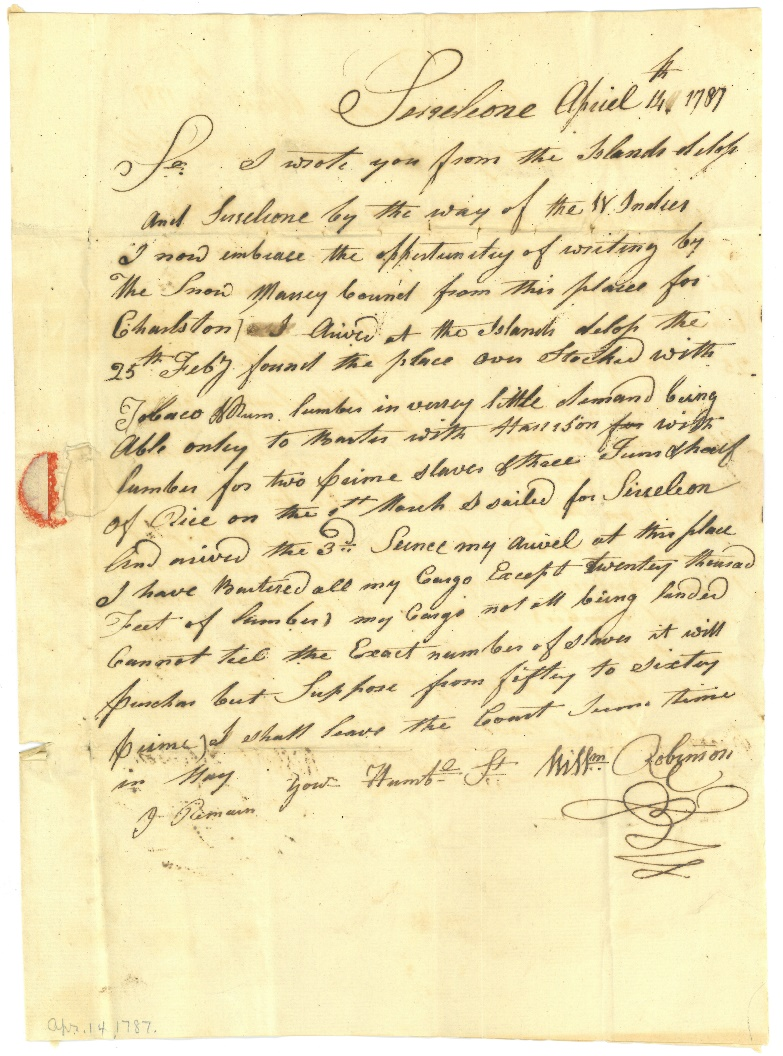 Serreleone Apriel 14th 1787
Sr. I wrote you from the Islands delos
and Sirreleone by the way of the W Indies
I now embrace the oppertunity of writing by
the Snow Marsey bound from this place for
Charlston) I Arived at the Islands delos the
25th Feby found the place over Stocked with
Tobaco & Rum lumber in verrey little demand being
Able onley to Barter with Harrison for with
lumber for two prime slaves & three Tuns & half
of Rice on the 1st March I sailed for Sirreleon
And arived the 3rd Sence my arivel at this place
I have Bartered all my Cargo Except twentey thousad
Feet of lumber) my Cargo not all being landed
Cannot tell the Exact number of slaves it will
purchas but Suppose from fiftey to sixtey
prime) I shall leave the Coast sume time
in May your Humble St. Willm Robinson
I Remain
Apr. 14, 1787.